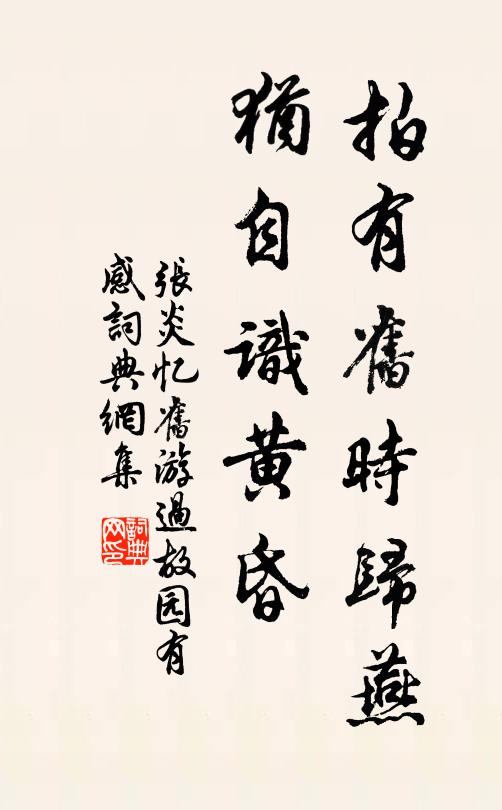 拍有舊時歸燕
猶自識黄昏
張炎忆舊游過故园有
感詞典網集
詞典网印